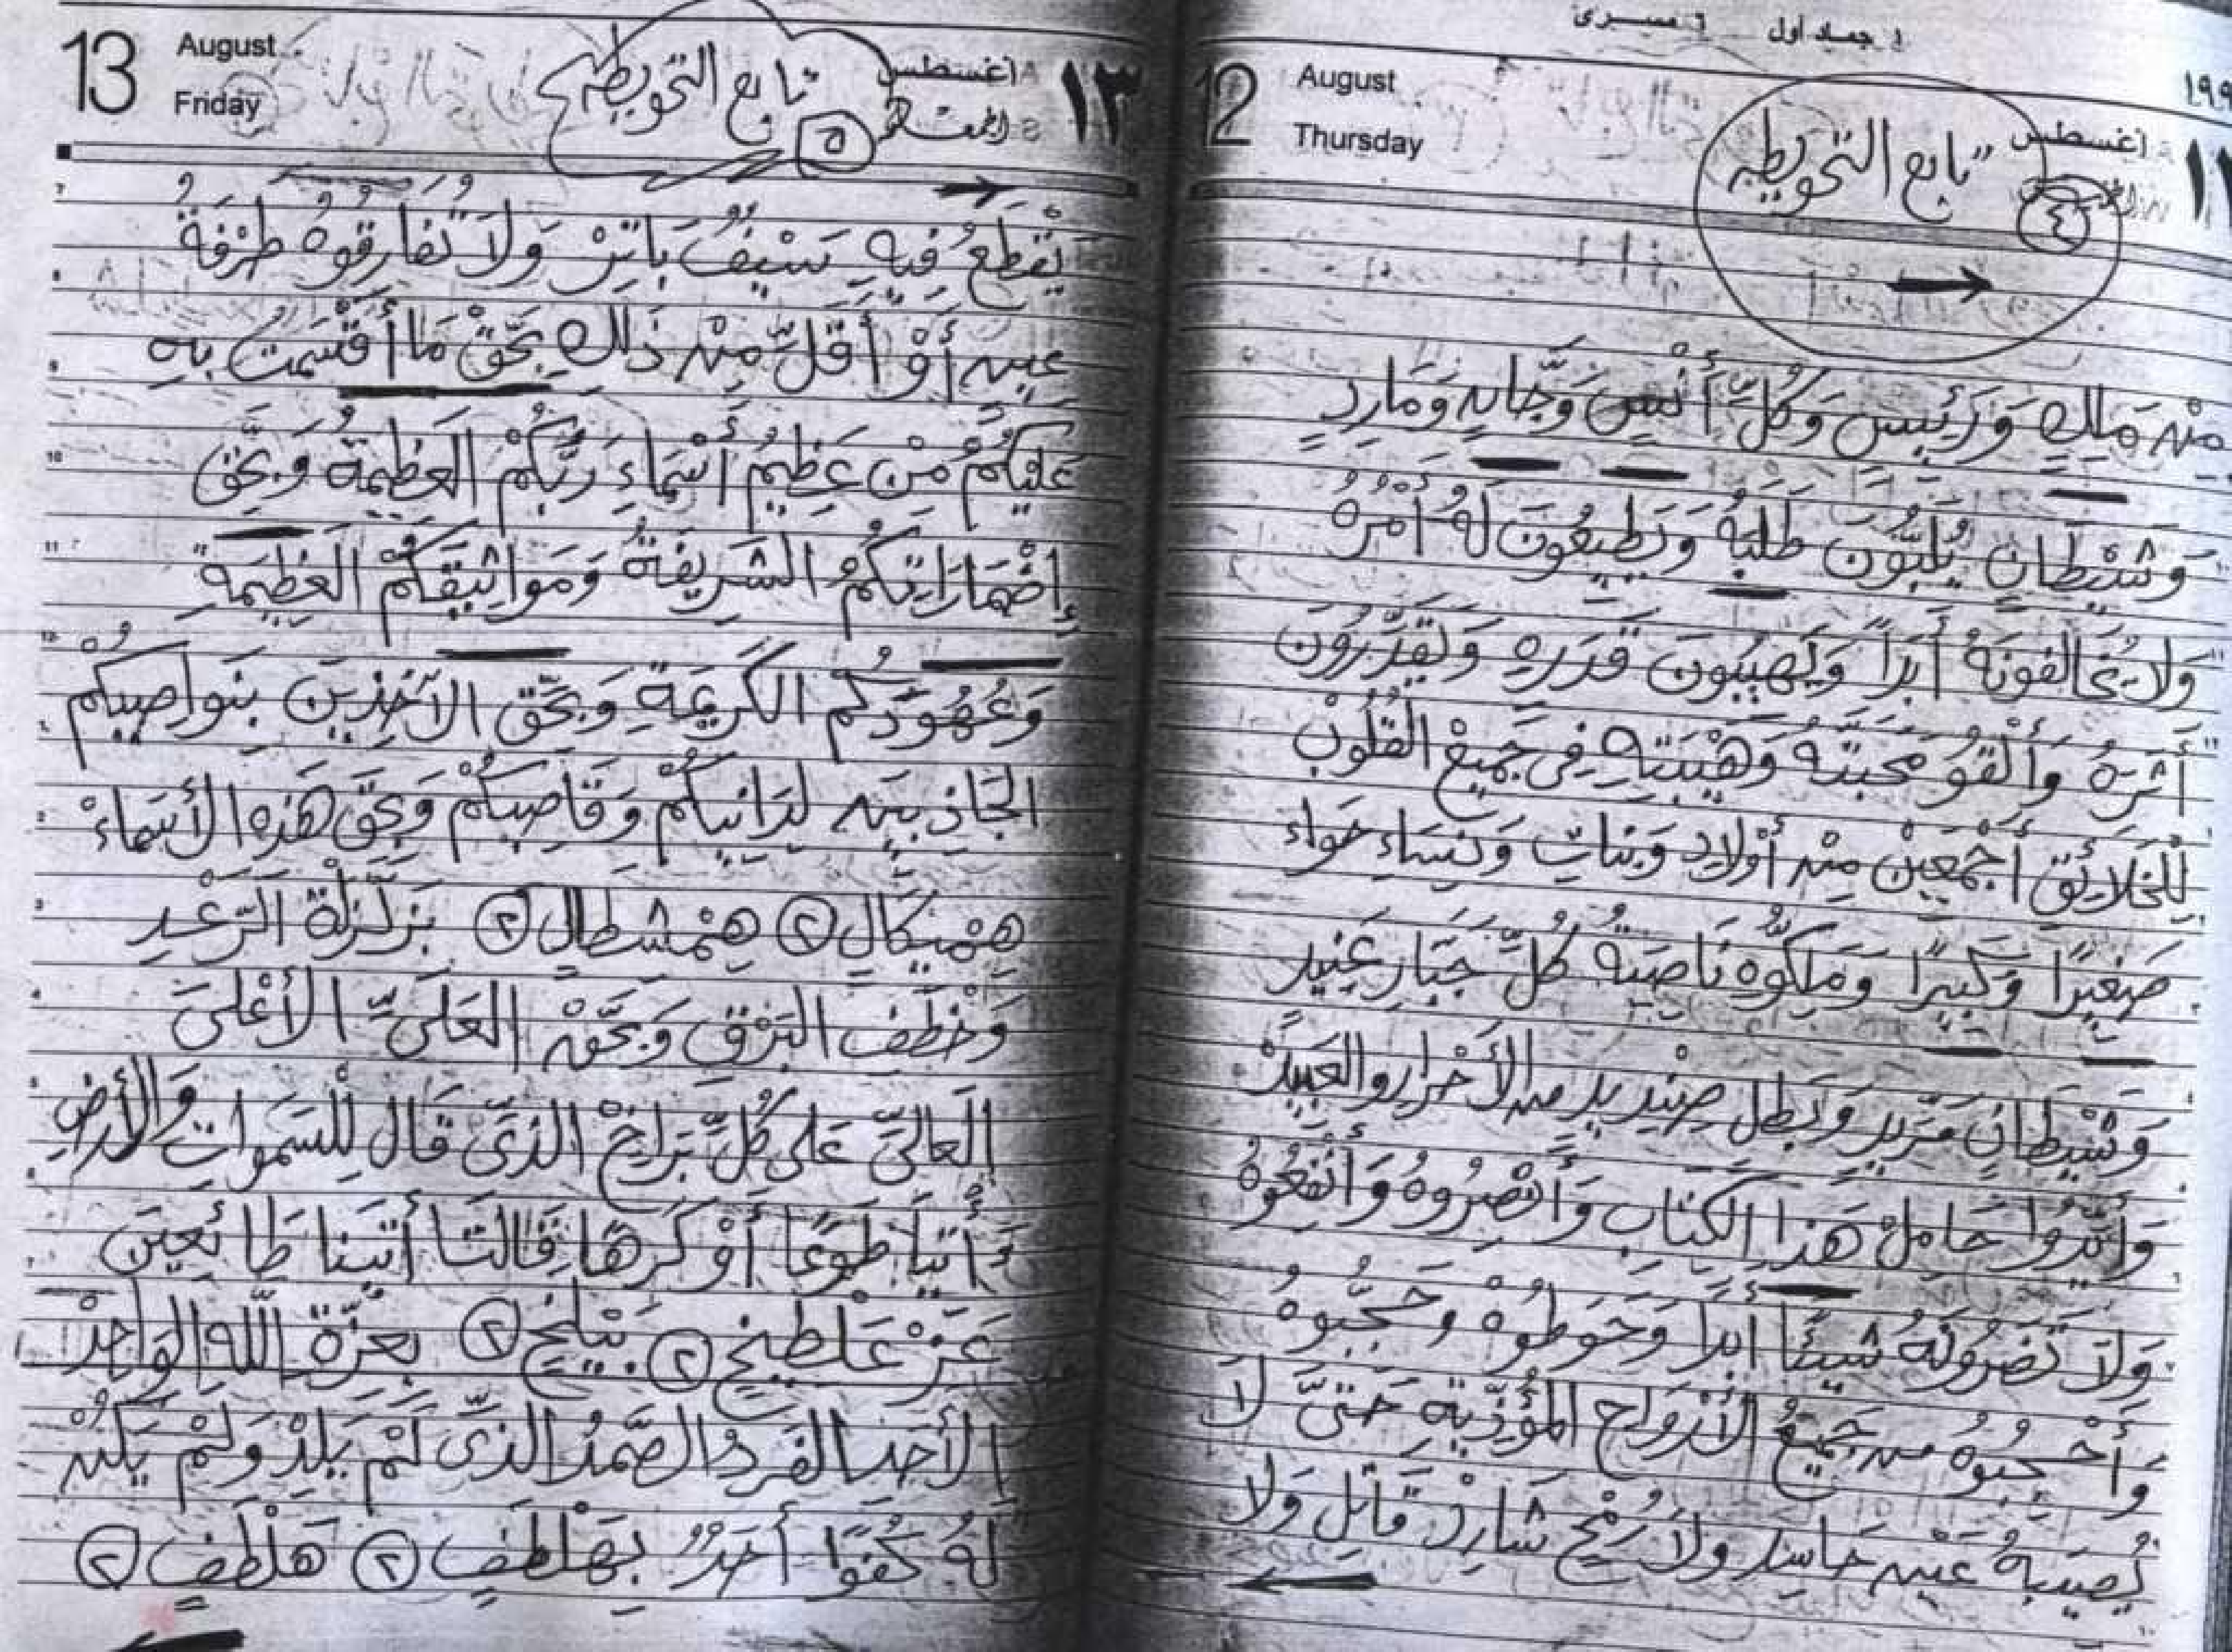 ١ جماد أول ٦ مسرى
١٩٩
12 August
Thursday
أغسطس
تابع التحويطه
٤
مِنْ مَلِكٍ وَرَئِيسٍ وَكُلِّ أَنْسٍ وَجَانٍ وَمَارِدٍ
وَشَيْطَانٍ يُلَبُّونَ طَلَبَهُ وَيَطِيعُونَ لَهُ أَمْرَهُ
وَلَا يُخَالِفُونَهُ أَبَداً وَيَهِيبُونَ قَدَرِهِ وَيُقَدِّرُونَ
أَثَرَهُ وَأَلْقُو مَحَبَّتَهُ وَهَيْبَتِهِ فِى جَمِيعْ الْقُلُوبْ
لِلْخَلَايِقِ أَجْمَعِينْ مِنْ أَوْلَادٍ وَبَنَاتٍ وَنِسَاءِ حَوَاءْ
صَغِيرًا وَكَبِيرًا وَمَلِّكُوهُ نَاصِيَةُ كُلِّ جَبَارٍ عَنِيدٍ
وَشَيْطَانٍ مَرِيدٍ وَبَطَلٍ صِنْدِيدٍ مِن الْأَحْرَارِ وَالْعَبِيدْ
وَأَيِّدُوا حَامِلْ هَذَا الْكِتَابِ وَأَنْصِرُوهُ وَأَنْفِعُوهُ
وَلَا تَضُرُونَهُ شَيْئًا أَبَداً وَحَوِطُوهْ وَحَجِّبُوهُ
وَأَحْجِبُوهُ مِن جَمِيعُ الْأَرْوَاحِ الْمُؤْذِيَةِ حَتَّى لَا
تُصِيبَهُ عَيْنِ حَاسِدٍ وَلَا رُمْحِ شَارِدْ قَاتِلٍ وَلَا
13 August
Friday
١٣ أغسطس
الجمعة
تابع التحويطه
٥
يَقْطَعُ فِيهِ سَيْفٌ بَاتِرْ وَلَا تُفَارِقُوهُ طَرْفَةُ
عَيْنٍ أَوْ أَقَلَّ مِنْ ذَالِكَ بِحَقْ مَا أَقْسَمْتُ بِهِ
عَلَيْكُمْ مِنْ عَظِيمُ أَسْمَاءَ رَبِّكُمْ الْعَظِيمَةُ وَبِحَقِ
إِضْمَارَاتِكُمْ الشَّرِيفَةُ وَمَوَاثِيقَكُمْ الْعَظِيمَةِ
وَعُهُودَكُم الْكَرِيمَةِ وَبِحَقِ الْآخِذِينَ بِنَواصِيكُم
الْجَاذِبِين لِدَانِيكُمْ وَقَاصِيكُمْ وَبِحَقِ هَذِهِ الْأَسْمَاءْ
هَمْيَكَالٍ ٢ هَمْشَطَالٍ ٢ بَزَلْزَلَةْ الرَّعْدِ
وَخَطْفِ الْبَرْقِ وَبِحَقْ الْعَلِىِّ الْأَعْلَى
الْعَالِىِّ عَلَى كُلِّ بَرَاخٍ الَّذِى قَالَ لِلْسَمَوَاتِ وَالْأَرْضِ
أَتِيَا طَوْعًا أَوْ كَرْهًا قَالَتَا أَتَيْنَا طَائِعِينَ
عَزْ عَلْطِيخٍ ٢ بَيْلَخٍ ٢ بِعِزَّةْ اللَّهِ الْوَاحِدْ
الْأَحَدْ الْفَرِدُ الصَّمَدُ الَّذِى لَمْ يَلِدْ وَلَمْ يُولَدْ وَلَمْ يَكُنْ
لَهُ كُفُوًا أَحَدٌ بِهَلْطَفٍ ٢ هَلْطَفٍ ٢